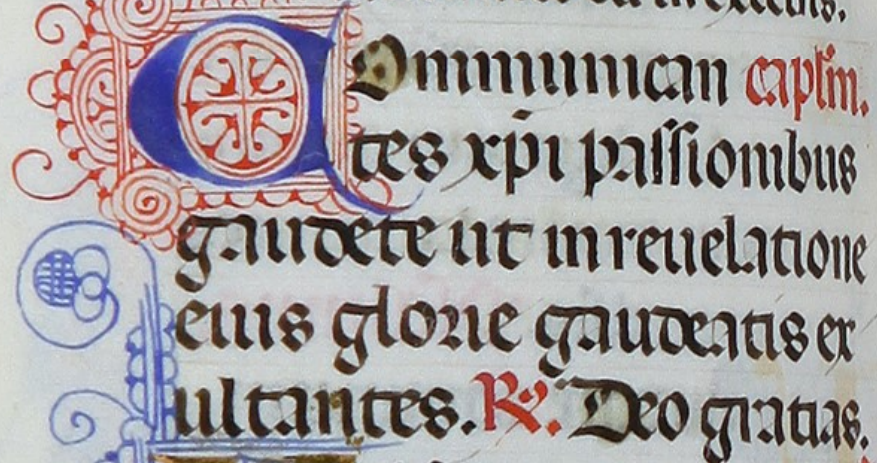 Communican caplm.
tes xpi passionibus
gaudete ut in reuelatione
eius glorie gaudeatis ex
ultantes. R. Deo gratias.